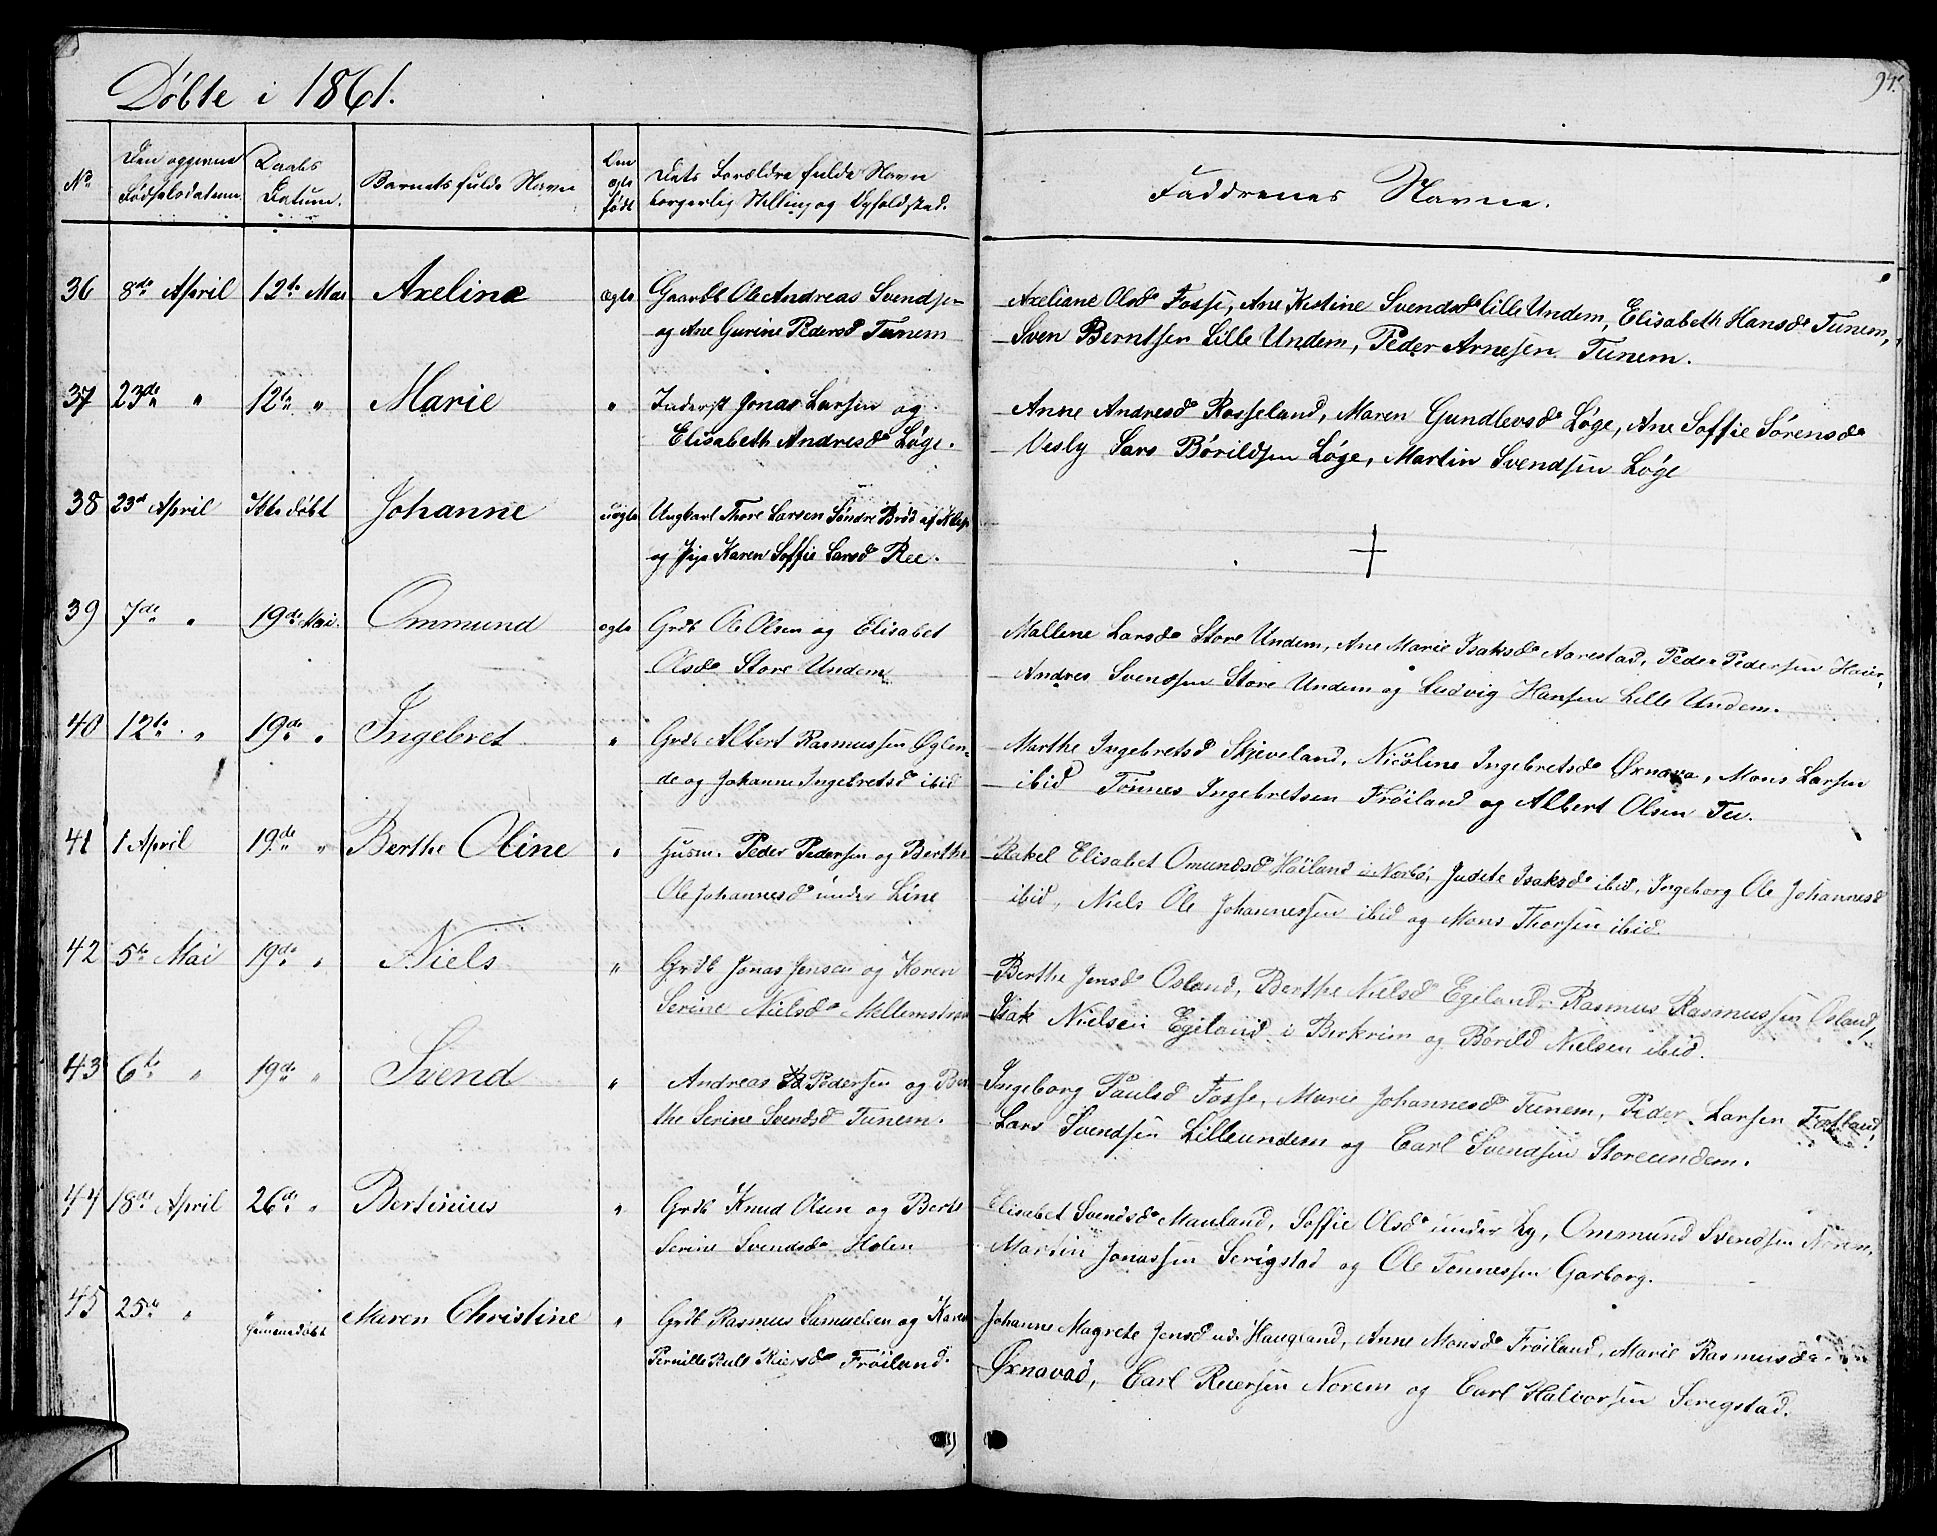 Döbte i 1861.
94.
No. Den opgivne Fødselsdatum. Daabs Datum. Barnets fulde Navn Om ægte født Dets Forældre fulde Navn borgerlig Stilling og Opholdsted. Faddrenes Navne.
36 8de April 12te Mai Axeline ægte Gaardb Ole Andreas Svendsen Axeliane Olsd. Fosse, Ane Kistine Svendsd. Lille Undem, Elisabeth Hansd. Tunem,
og Ane Gurine Pedersd Tunem Sven Berntsen Lille Undem, Peder Arnesen Tunem.
37 23de " 12te " Marie " Inderst Jonas Larsen og Anne Andresd. Rosseland, Maren Gundlevsd. Løge, Ane Soffie Sørensd.
Elisabeth Andresd. Løge. Vesly Lars Bórildsen Løge, Martin Svendsen Løge
38 23d April Ikke döbt Johanne uægte Ungkarl Thore Larsen Söndre Bröd af Klep
og Pige Karen Soffie Larsd. Ree.
39 7de " 19de Mai. Ommund ægte Grdb Ole Olsen og Elisabet Mallene Larsd. Store Undem, Ane Marie Isaksd. Aarestad, Peder Pedersen Haier,
Olsd. Store Undem Andres Svendsen Store Undem og Ludvig Hansen Lille Undem.
40 12te " 19de " Ingebret " Grdb Albert Rasmussen Øglen- Marthe Ingebretsd Skjeveland, Nicoline Ingebretsd. Ørnava, Mons Larsen
de og Johanne Ingebretsd ibid ibid Tönnes Ingebretsen Fröiland og Albert Olsen Tu.
41 1 April 19de " Berthe Oline " Husm. Peder Pedersen og Berthe Rakel Elisabet Omundsd. Höiland i Norbö, Judite Isaksd. ibid, Ingeborg Ole Johannesd
Ole Johannesd. under Line ibid, Niels Ole Johannessen ibid og Mons Thorsen ibid.
42 5te Mai 19de " Niels " Grdb Jonas Jensen og Karen Berthe Jensd. Osland, Berthe Nielsd. Egeland, Rasmus Rasmussen Osland,
Serine Nielsd. Mellemstrand Isak Nielsen Egeland i Berkrim og Bórild Nielsen ibid.
43 6te " 19de " Svend " Andreas Pedersen og Ber- Ingeborg Paulsd Fosse, Marie Johannesd. Tunem, Peder Larsen Fotland,
the Serine Svendsd Tunem. Lars Svendsen Lilleundem og Carl Svendsen Storeundem.
44 18de April 26de " Bertinius " Grdb Knud Olsen og Berte Elisabet Svendsd. Mauland, Soffie Olsd. under Ly, Ommund Svendsen Norem,
Serine Svendsd. Holen Martin Jonassen Serigstad og Ole Tönnessen Garborg.
45 25de " " Hjemmedöbt Maren Christine " Grdb Rasmus Samuelsen og Karen Johanne Magrete Jensd ud. Haugland, Anne Monsd. Fröiland, Marie Rasmusd.
Pernille Reiersd. Fröiland. Ørnavad, Carl Reiersen Norem og Carl Halvorsen Serigstad.